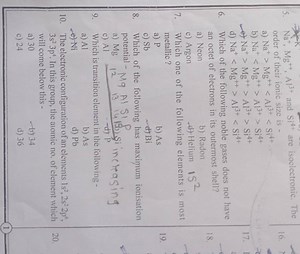 5. Na⁺, Mg²⁺, Al³⁺ and Si⁴⁺ are isoelectronic. The
order of their ionic size is -
a) Na⁺ > Mg²⁺ < Al³⁺ < Si⁴⁺
b) Na⁺ < Mg²⁺ > Al³⁺ > Si⁴⁺
c) Na⁺ > Mg²⁺ > Al³⁺ > Si⁴⁺
d) Na⁺ < Mg²⁺ > Al³⁺ < Si⁴⁺
6. Which of the following noble gases does not have
an octet of electrons in its outermost shell?
a) Neon b) Radon
c) Argon d) Helium 1S²
7. Which one of the following elements is most
metallic ?
a) P b) As
c) Sb d) Bi
8. Which of the following has maximum ionisation
potential : Mg Al Si P
a) Mg b) Si increasing
c) Al d) P
9. Which is transition element in the following -
a) Al b) As
c) Ni d) Pb
10. The electronic configuration of an elements 1s², 2s² 2p⁶,
3s² 3p³. In this group, the atomic no. of element which
will come below this -
a) 30 b) 34
c) 24 d) 36
16.
17.
18.
19.
20.
1